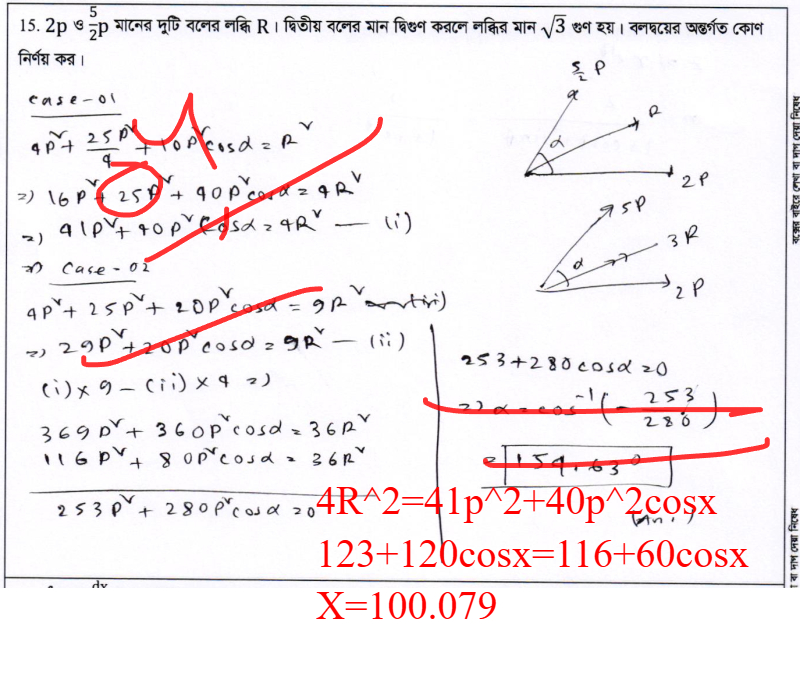 15. 2p ও 5/2p মানের দুটি বলের লব্ধি R । দ্বিতীয় বলের মান দ্বিগুণ করলে লব্ধির মান √3 গুণ হয়। বলদ্বয়ের অন্তর্গত কোণ
নির্ণয় কর।
case-01
4P² + 25P²/4 + 10P² cosα = R²
=) 16P² + 25P² + 40P² cosα = 4R²
=) 41P² + 40P² cosα = 4R² — (i)
=) Case-02
4P² + 25P² + 20P² cosα = 9R²
=) 29P² + 20P² cosα = 9R² — (ii)
(i) x 9 - (ii) x 4 =)
369P² + 360P² cosα = 36R²
116P² + 80P² cosα = 36R²
253P² + 280P² cosα = 0
5/2 P
α
R
2P
5P
α
3R
2P
253 + 280 cosα = 0
=) α = cos⁻¹ (- 253/280)
= 154.63°
(Ans.)
4R^2=41p^2+40p^2cosx
123+120cosx=116+60cosx
X=100.079
বক্সের বাইরে লেখা বা দাগ দেয়া নিষেধ
া বা দাগ দেয়া নিষেধ
dx